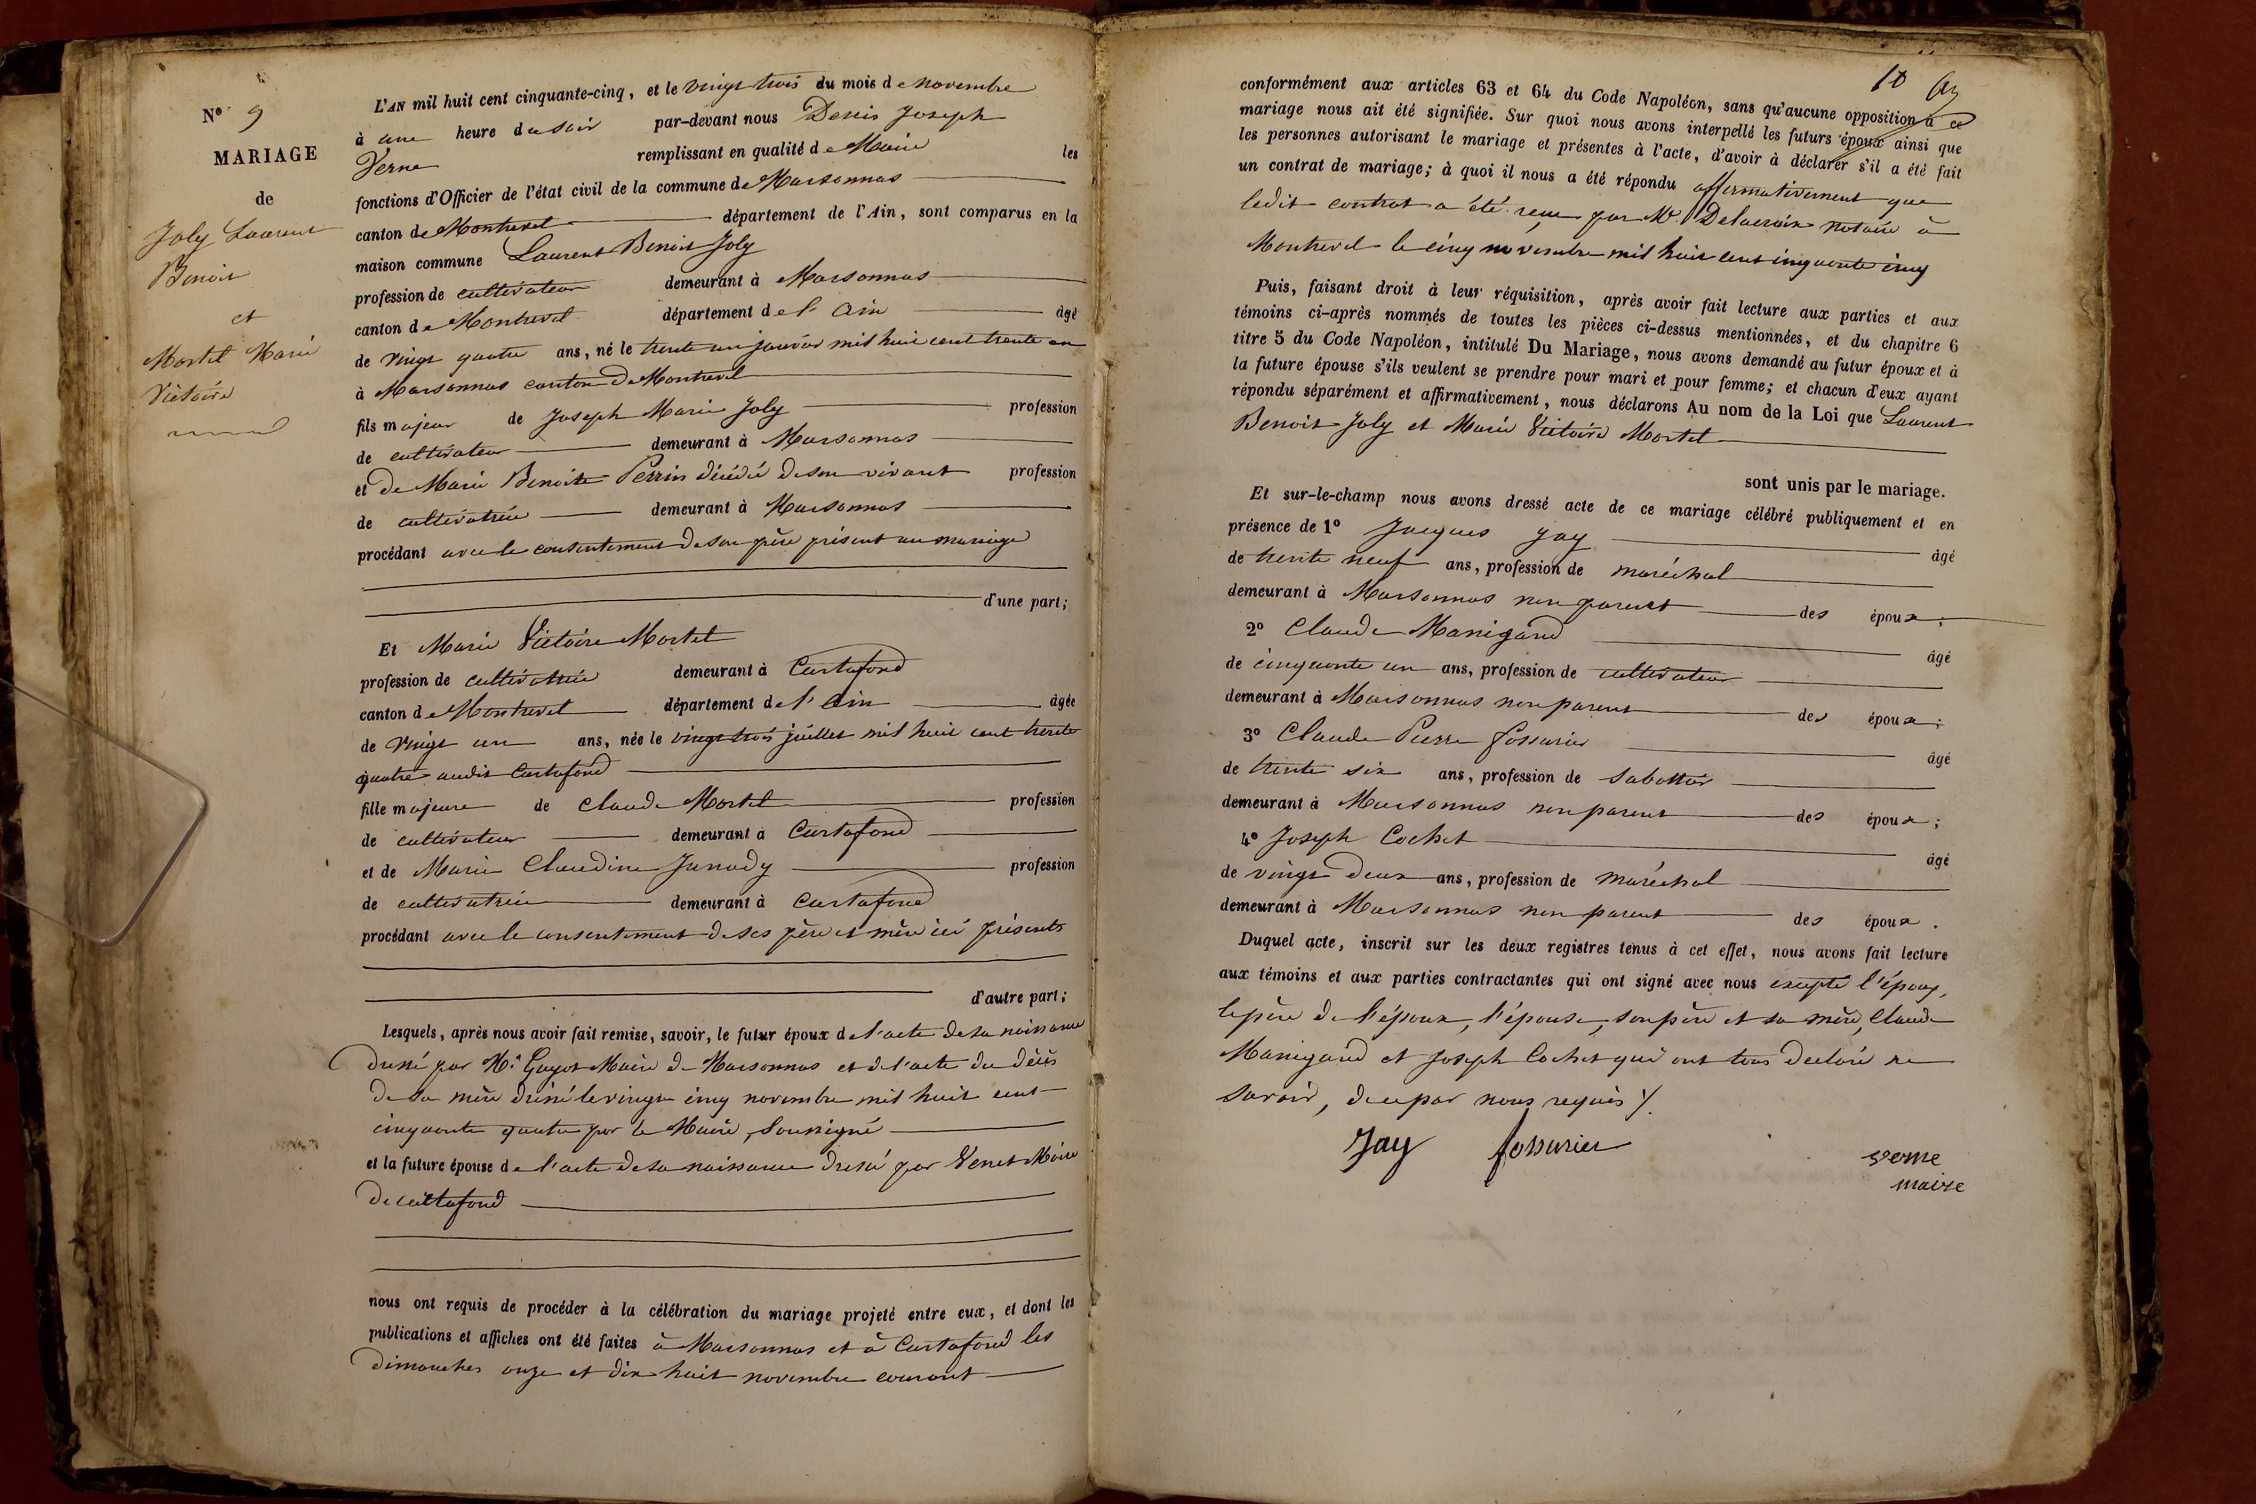 Nº 9
MARIAGE
de
Joly Laurent
Benoit
et
Mortel Marie
Victoire
L'AN mil huit cent cinquante-cinq, et le vingt trois du mois de novembre
à une heure du soir par-devant nous Denis Joseph
Verne remplissant en qualité de Maire les
fonctions d'Officier de l'état civil de la commune de Marsonnas
canton de Montrevel département de l'Ain, sont comparus en la
maison commune Laurent Benoit Joly
profession de cultivateur demeurant à Marsonnas
canton de Montrevel département de l'Ain âgé
de vingt quatre ans, né le trente un janvier mil huit cent trente un
à Marsonnas canton de Montrevel
fils majeur de Joseph Marie Joly profession
de cultivateur demeurant à Marsonnas
et de Marie Benoite Perrin décédée de son vivant profession
de cultivatrice demeurant à Marsonnas
procédant avec le consentement de son père présent au mariage
d'une part;
Et Marie Victoire Mortel
profession de cultivatrice demeurant à Curtafond
canton de Montrevel département de l'Ain âgée
de vingt un ans, née le vingt trois juillet mil huit cent trente
quatre audit Curtafond
fille majeure de Claude Mortel profession
de cultivateur demeurant à Curtafond
et de Marie Claudine Junody profession
de cultivatrice demeurant à Curtafond
procédant avec le consentement de ses père et mère ici présents
d'autre part;
Lesquels, après nous avoir fait remise, savoir, le futur époux de l'acte de sa naissance
dressé par Mr Guyot Maire de Marsonnas et de l'acte du décès
de sa mère dressé le vingt cinq novembre mil huit cent
cinquante quatre par le Maire, soussigné
et la future épouse de l'acte de sa naissance dressé par Venet Maire
de curtafond
nous ont requis de procéder à la célébration du mariage projeté entre eux, et dont les
publications et affiches ont été faites à Marsonnas et à Curtafond les
dimanches onze et dix huit novembre courant
10
conformément aux articles 63 et 64 du Code Napoléon, sans qu'aucune opposition à ce
mariage nous ait été signifiée. Sur quoi nous avons interpellé les futurs époux ainsi que
les personnes autorisant le mariage et présentes à l'acte, d'avoir à déclarer s'il a été fait
un contrat de mariage; à quoi il nous a été répondu affirmativement que
ledit contrat a été reçu par Me Delacroix notaire à
Montrevel le cinq novembre mil huit cent cinquante cinq
Puis, faisant droit à leur réquisition, après avoir fait lecture aux parties et aux
témoins ci-après nommés de toutes les pièces ci-dessus mentionnées, et du chapitre 6
titre 5 du Code Napoléon, intitulé Du Mariage, nous avons demandé au futur époux et à
la future épouse s'ils veulent se prendre pour mari et pour femme; et chacun d'eux ayant
répondu séparément et affirmativement, nous déclarons Au nom de la Loi que Laurent
Benoit Joly et Marie Victoire Mortel
sont unis par le mariage.
Et sur-le-champ nous avons dressé acte de ce mariage célébré publiquement et en
présence de 1º Jacques Jay âgé
de trente neuf ans, profession de maréchal
demeurant à Marsonnas non parent des époux;
2º Claude Manigand âgé
de cinquante un ans, profession de cultivateur
demeurant à Marsonnas non parent des époux;
3º Claude Pierre fossurier âgé
de trente six ans, profession de sabottier
demeurant à Marsonnas non parent des époux;
4º Joseph Cochet âgé
de vingt deux ans, profession de maréchal
demeurant à Marsonnas non parent des époux.
Duquel acte, inscrit sur les deux registres tenus à cet effet, nous avons fait lecture
aux témoins et aux parties contractantes qui ont signé avec nous excepté l'époux,
le père de l'époux, l'épouse, son père et sa mère, Claude
Manigand et Joseph Cochet qui ont tous déclaré ne
savoir, de ce par nous requis ./.
Jay fossurier Verne
maire